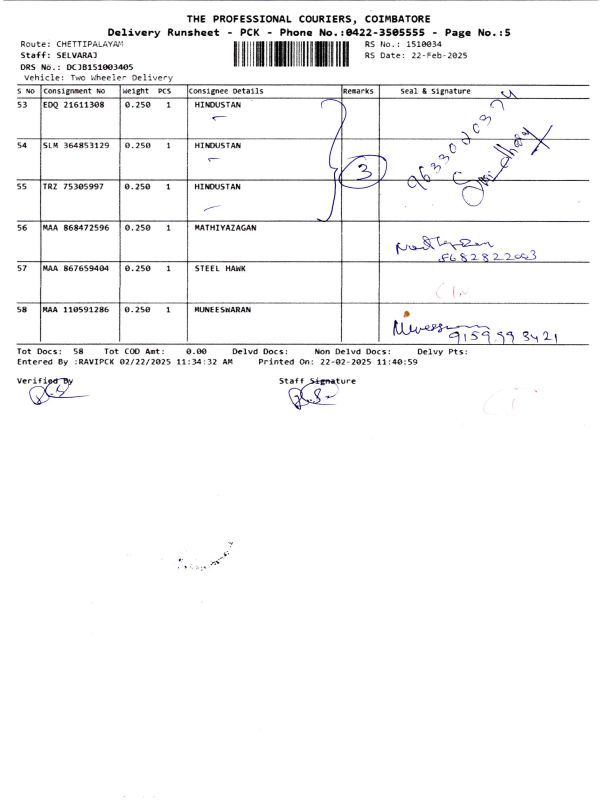 THE PROFESSIONAL COURIERS, COIMBATORE
Delivery Runsheet - PCK - Phone No.:0422-3505555 - Page No.:5
Route: CHETTIPALAYAM RS No.: 1510034
Staff: SELVARAJ RS Date: 22-Feb-2025
DRS No.: DCJB151003405
Vehicle: Two Wheeler Delivery
S No Consignment No Weight PCS Consignee Details Remarks Seal & Signature
53 EDQ 21611308 0.250 1 HINDUSTAN
9633020374
54 SLM 364853129 0.250 1 HINDUSTAN
3
55 TRZ 75305997 0.250 1 HINDUSTAN
56 MAA 868472596 0.250 1 MATHIYAZAGAN
57 MAA 867659404 0.250 1 STEEL HAWK
58 MAA 110591286 0.250 1 MUNEESWARAN
Tot Docs: 58 Tot COD Amt: 0.00 Delvd Docs: Non Delvd Docs: Delvy Pts:
Entered By :RAVIPCK 02/22/2025 11:34:32 AM Printed On: 22-02-2025 11:40:59
Verified By Staff Signature